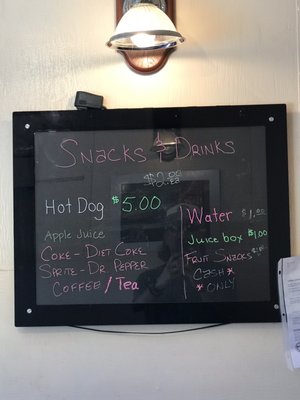 Snacks & Drinks
$2.00
Hot Dog $5.00
Apple Juice
Coke - Diet Coke
Sprite - Dr. Pepper
Coffee / Tea
Water $1.00
Juice box $1.00
Fruit Snacks
Cash *
* Only